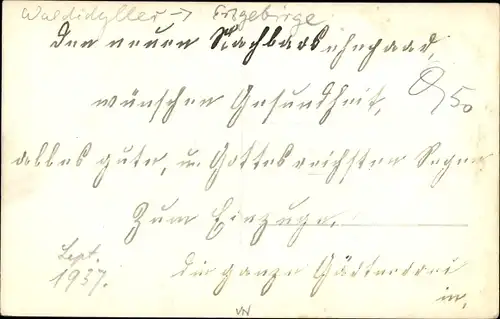 Waldidyller → Erzgebirge
Den neuen Nachbarsehepaar,
wünschen Gesundheit,
0,50
alles gute, u. Gottes reichsten Segen
Zum Einzuge.
Sept.
1937.
die ganze